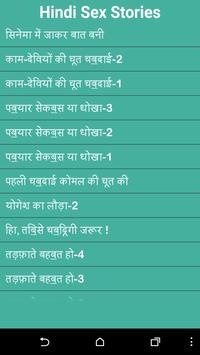 Hindi Sex Stories
सिनेमा में जाकर बात बनी
काम-देवियों की चूत चब॒दाई-2
काम-देवियों की चूत चब॒दाई-1
पब॒यार सेकब॒स या धोखा-3
पब॒यार सेकब॒स या धोखा-2
पब॒यार सेकब॒स या धोखा-1
पहली चब॒दाई कोमल की चूत की
योगेश का लौड़ा-2
जरूर !
तड़फ़ाते बहब॒त हो-4
तड़फ़ाते बहब॒त हो-3